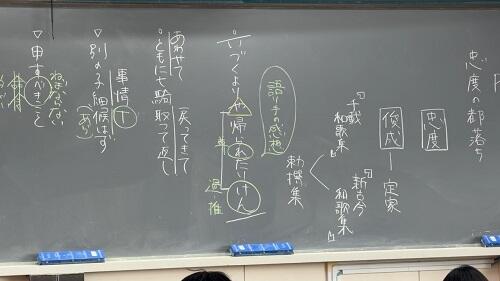 忠度の都落ち
忠度
俊成 ー 定家
「千載和歌集」
「新古今和歌集」
勅撰集
語り手の感想
いづくよりや帰られたりけん
尊
過・推
戻ってきて
あわせて
ともに七騎取つて返し
事情 丁
▽別の子細候はず
あり
ねばならない
▽申すべきこと